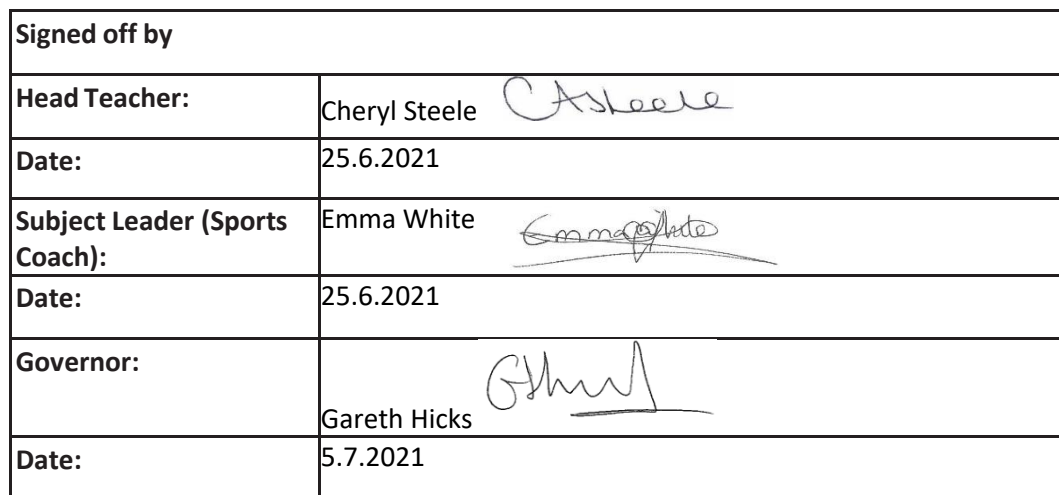 Signed off by
Head Teacher:
Cheryl Steele CASteele
Date:
25.6.2021
Subject Leader (Sports
Coach):
Emma White EmmaWhite
Date:
25.6.2021
Governor:
Gareth Hicks
Date:
5.7.2021